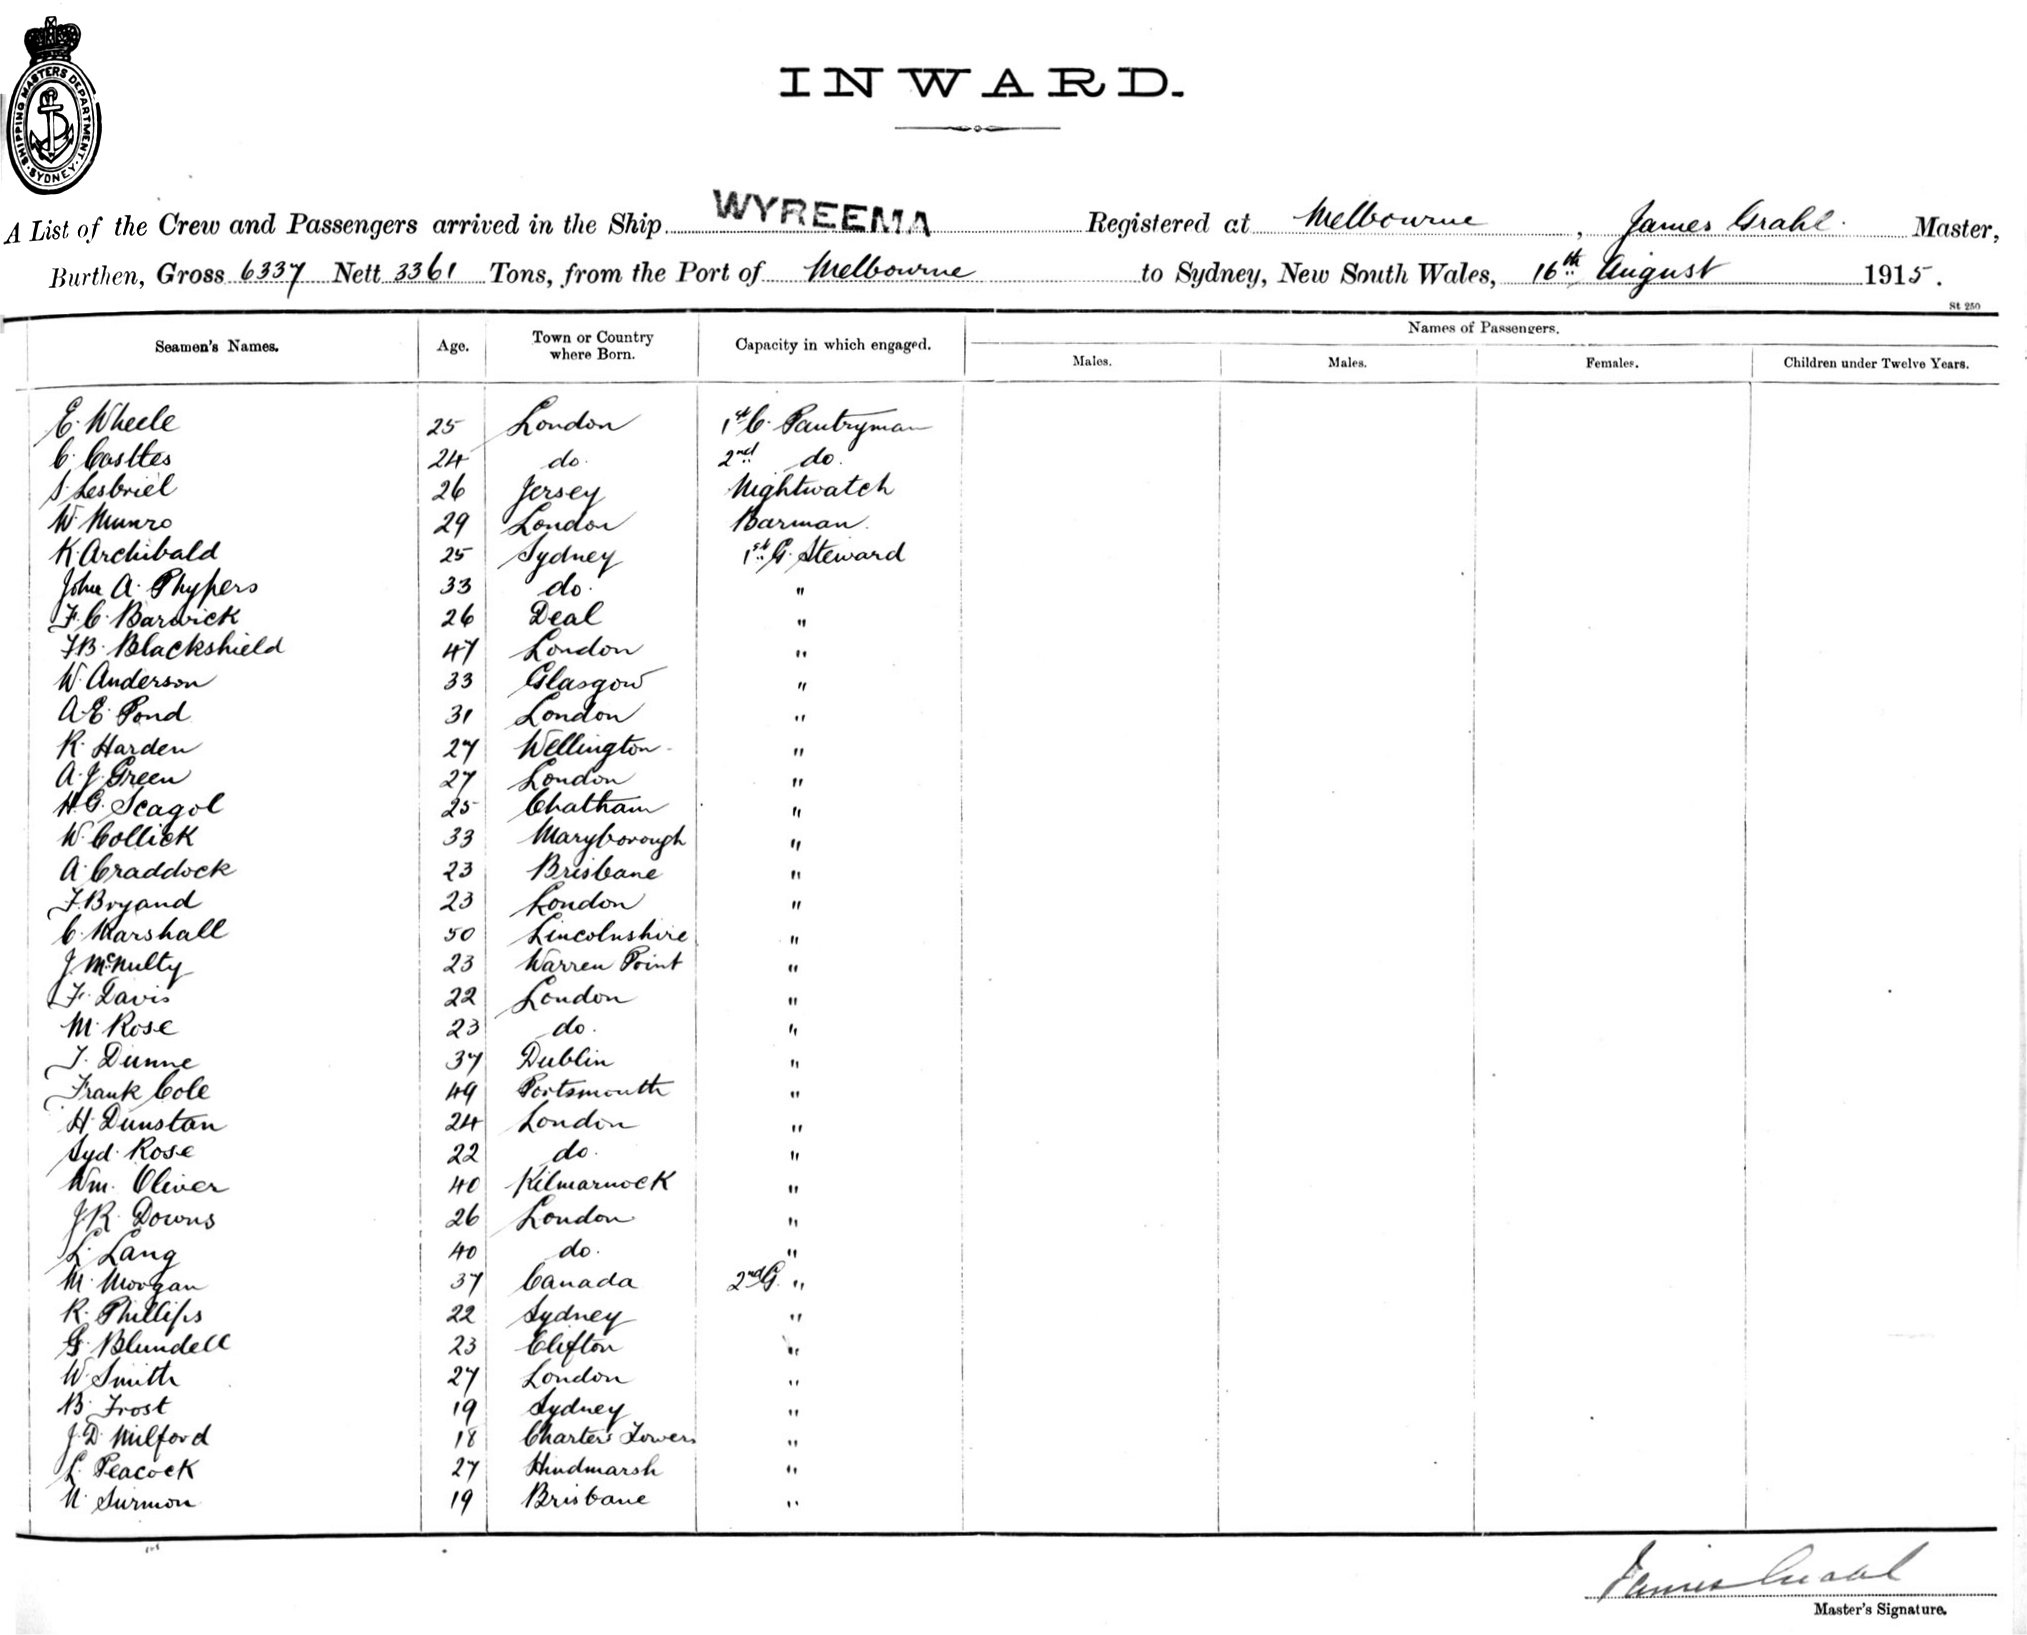 SHIPPING MASTERS DEPARTMENT. SYDNEY.
INWARD.
A List of the Crew and Passengers arrived in the Ship WYREEMA Registered at Melbourne, James Grahl. Master,
Burthen, Gross 6337 Nett 3361 Tons, from the Port of Melbourne to Sydney, New South Wales, 16th August 1915.
St 250
Seamen's Names. Age. Town or Country where Born. Capacity in which engaged. Names of Passengers.
Males. Males. Females. Children under Twelve Years.
E. Wheele 25 London 1st C. Pantryman
C. Castles 24 do. 2nd do.
S. Lesbriel 26 Jersey Nightwatch
W. Munro 29 London Barman.
K. Archibald 25 Sydney 1st G. Steward
John A. Phypers 33 do. "
F. C. Barwick 26 Deal "
F B. Blackshield 47 London "
W. Anderson 33 Glasgow "
A. E. Pond 31 London "
R. Harden 27 Wellington "
A. J. Green 27 London "
H. G. Seagol 25 Chatham "
W. Collick 33 Maryborough "
A. Craddock 23 Brisbane "
F. Bryand 23 London "
C. Marshall 50 Lincolnshire "
J. McNulty 23 Warren Point "
F. Davis 22 London "
M. Rose 23 do. "
T. Dunne 37 Dublin "
Frank Cole 49 Portsmouth "
H. Dunstan 24 London "
Syd. Rose 22 do. "
Wm. Oliver 40 Kilmarnock "
J. R. Downs 26 London "
L. Lang 40 do. "
M. Morgan 37 Canada 2nd G. "
R. Phillips 22 Sydney "
G. Blundell 23 Clifton "
W. Smith 27 London "
B. Frost 19 Sydney "
J. D. Milford 18 Charters Towers "
L. Peacock 27 Hindmarsh "
N. Surmon 19 Brisbane "
James Grahl
Master's Signature.